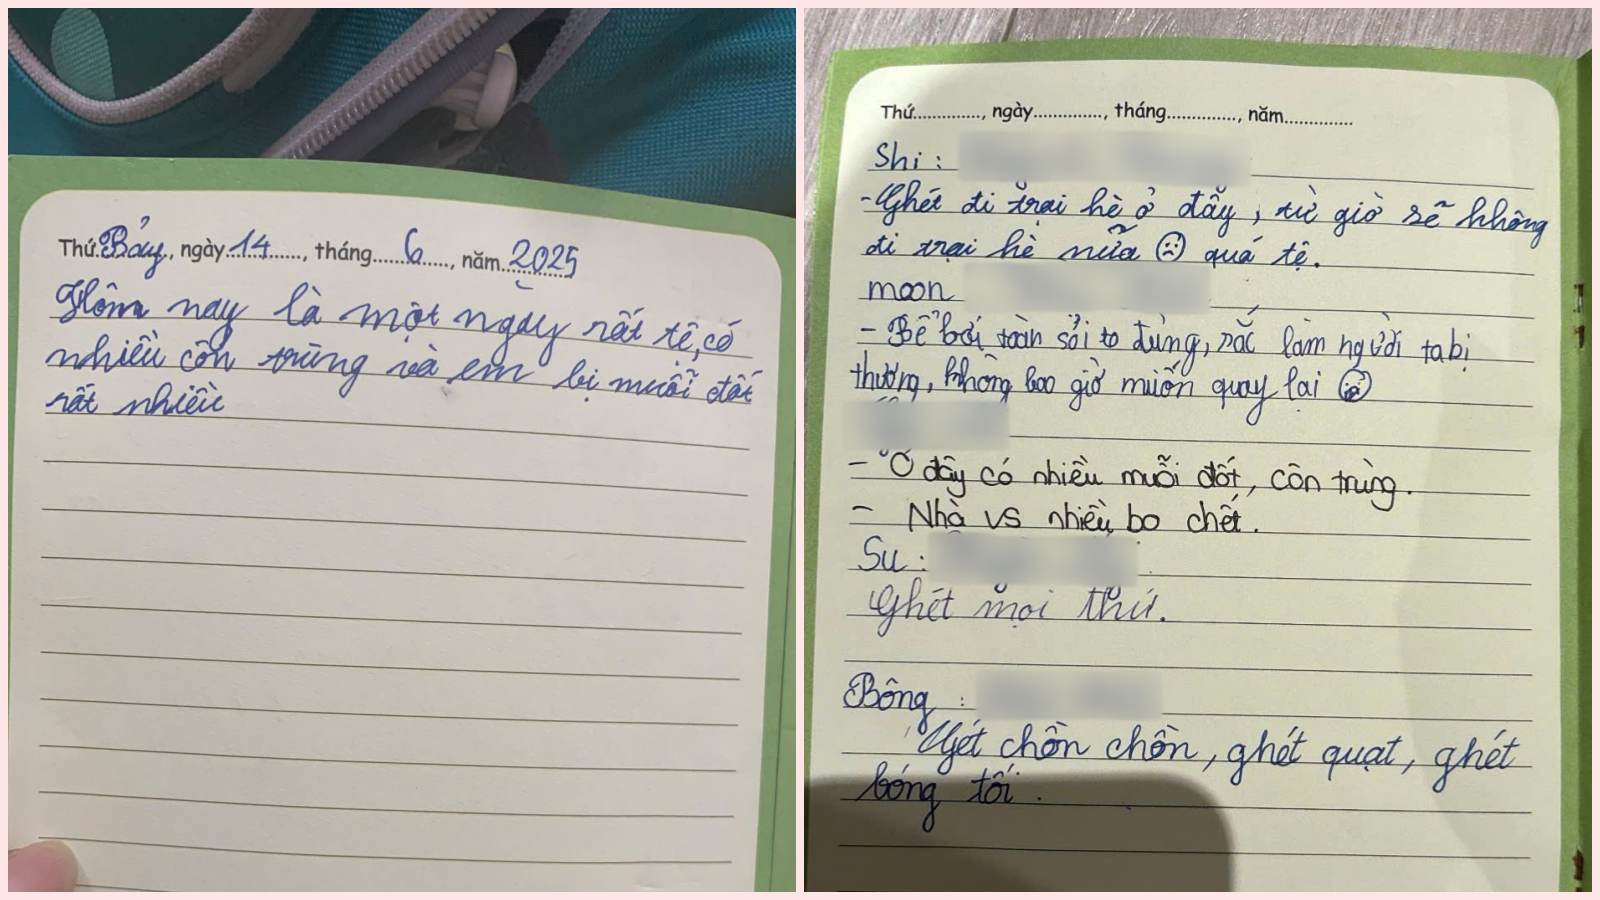 Thứ Bảy, ngày 14, tháng 6, năm 2025
Hôm nay là một ngày rất tệ, có
nhiều côn trùng và em bị muỗi đốt
rất nhiều
Thứ............., ngày............., tháng............., năm.............
Shi :
- Ghét đi trại hè ở đây, từ giờ sẽ không
đi trại hè nữa ☹ quá tệ.
moon
- Bể bơi toàn sỏi to đùng, rắc làm người ta bị
thương, không bao giờ muốn quay lại
- Ở đây có nhiều muỗi đốt, côn trùng.
- Nhà vs nhiều bọ chết.
Su :
Ghét mọi thứ.
Bông :
Ghét chồn chồn, ghét quạt, ghét
bóng tối.